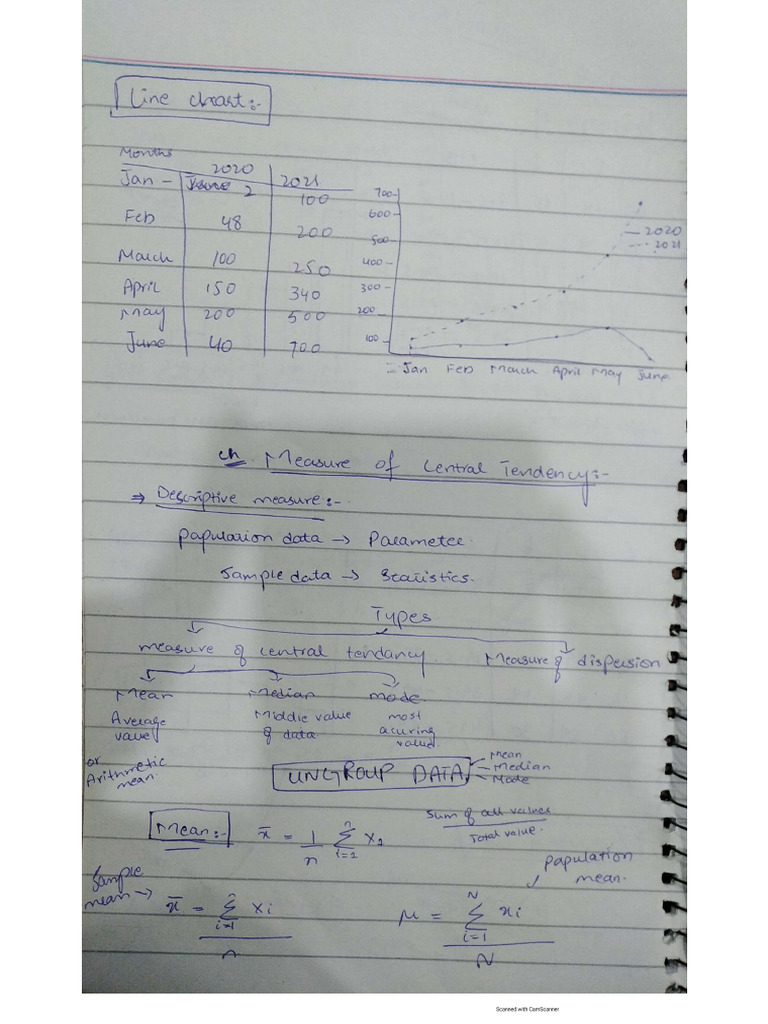 Line chart:-
Months
2020 2021
Jan - 2 100
Feb 48 200
March 100 250
April 150 340
May 200 500
June 40 700
700
600
500
400
300
200
100
2020
2021
Jan Feb March April May June
ch Measure of Central Tendency:-
⇒ Descriptive measure:-
Papulation data → Parameter.
Sample data → Statistics.
Types
measure of central tendancy. Measure of dispersion
Mean Median mode
Average value Middle value of data most acuring value
or Arithmetic mean
UNGROUP DATA
Mean
Median
Mode
Mean:- x̄ = 1/n Σ i=1 n x₁
Sum of all values
Total value.
papulation mean.
Sample mean → x̄ = Σ i=1 n xi / n
μ = Σ i=1 N xi / N
Scanned with CamScanner